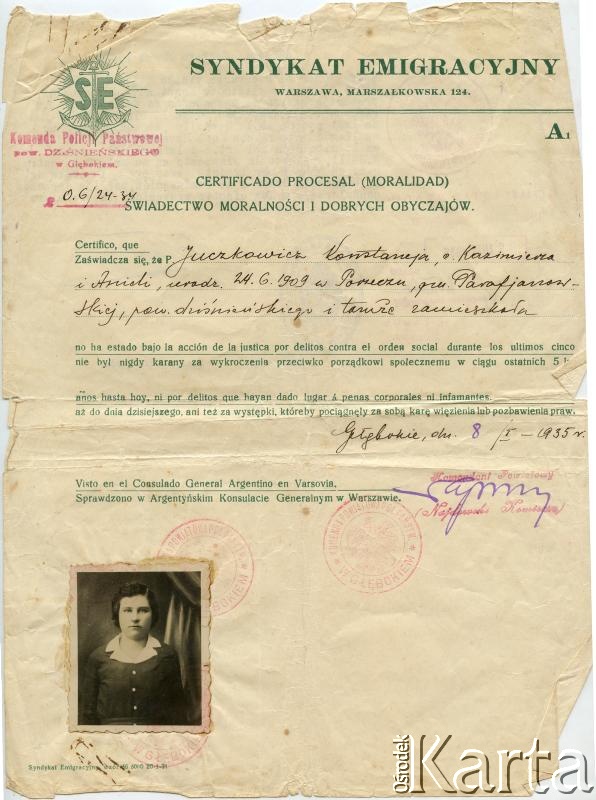 SE
SYNDYKAT EMIGRACYJNY
WARSZAWA, MARSZAŁKOWSKA 124.
A1
Komenda Policji Państwowej
pow. DZIŚNIEŃSKIEGO
w Głębokiem.
O.6/24-34
CERTIFICADO PROCESAL (MORALIDAD)
ŚWIADECTWO MORALNOŚCI I DOBRYCH OBYCZAJÓW.
Certifico, que
Zaświadcza się, że P. Juczkowicz Konstancja, c. Kazimierza
i Anieli, urodz. 24.6.1909 w Porzeczu, gm. Parafjanow-
skiej, pow. dziśnieńskiego i tamże zamieszkała
no ha estado bajo la acción de la justica por delitos contra el orden social durante los ultimos cinco
nie był nigdy karany za wykroczenia przeciwko porządkowi społecznemu w ciągu ostatnich 5
años hasta hoy, ni por delitos que hayan dado lugar á penas corporales ni infamantes.
aż do dnia dzisiejszego, ani też za występki, któreby pociągnęły za sobą karę więzienia lub pozbawienia praw.
Głębokie, dn. 8/I-1935 r.
Visto en el Consulado General Argentino en Varsovia.
Sprawdzono w Argentyńskim Konsulacie Generalnym w Warszawie.
Komendant Powiatowy
W GŁĘBOKIEM
W GŁĘBOKIEM
Syndykat Emigracyjny
Ośrodek
Karta